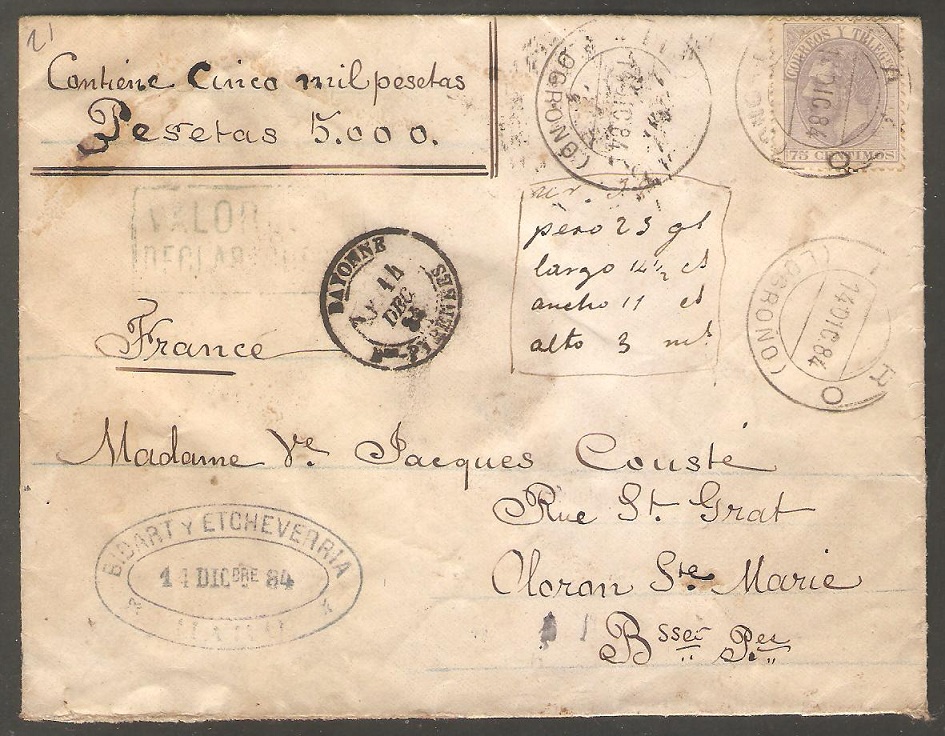 21
Contiene Cinco mil pesetas
Pesetas 5.000.
(LOGROÑO)
14 DIC 84
CORREOS Y TELEGFOS
75 CENTIMOS
DIC 84
VALOR
DECLAR
BAYONNE
14
DEC
84
Bses-PYRENEES
peso 23 gs
largo 14 1/2 cs
ancho 11 cs
alto 3 ms
(LOGROÑO)
14 DIC 84
HARO
France
Madame Ve. Jacques Cousté
Rue St. Grat
Oloron Ste Marie
Bsses Pes
BIDART Y ETCHEVERRIA
14 DICBRE 84